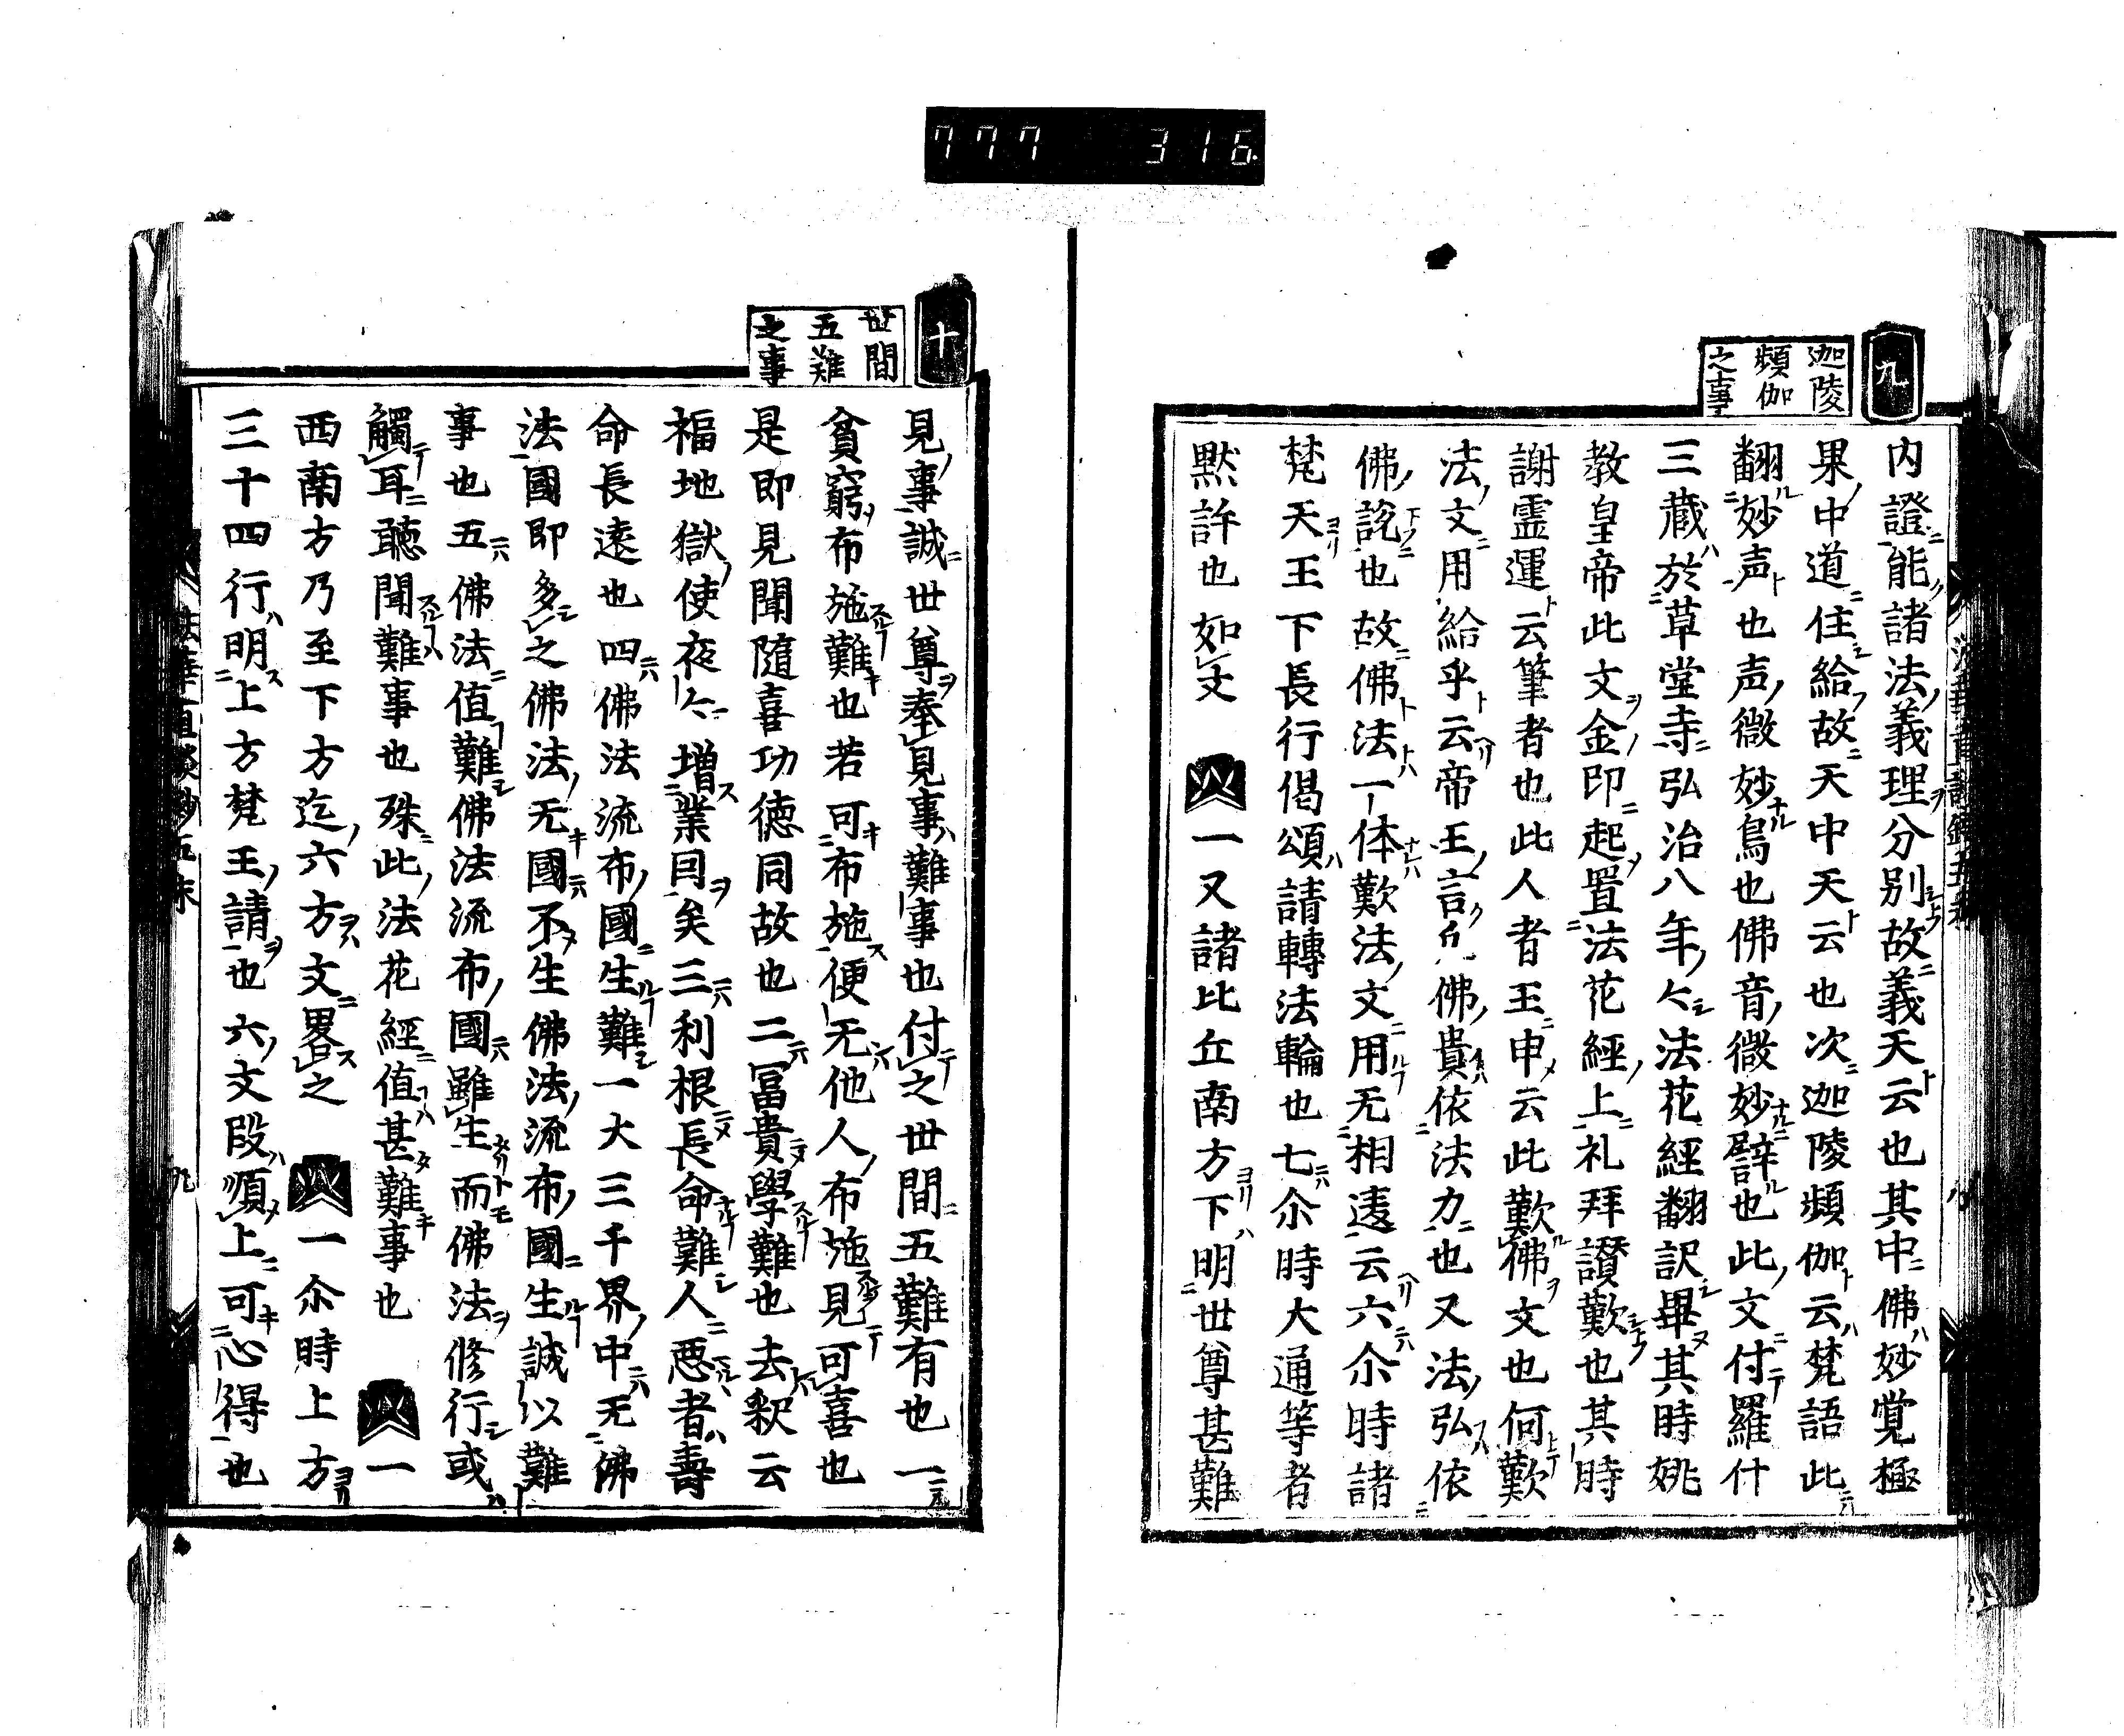 777 316
九
迦陵
頻伽
之事
内證能諸法義理分別故義天云也其中佛妙覚極
果中道住給故天中天云也次迦陵頻伽云梵語此
翻妙声也声微妙鳥也佛音微妙譬也此文付羅什
三蔵於草堂寺弘治八年法花經翻訳畢其時姚
教皇帝此文金即起置法花經上礼拜讃歎也其時
謝霊運云筆者也此人者王申云此歎佛文也何歎
法文用給乎云帝王言凡佛貴依法力也又法弘依
佛説也故佛法一体歎法文用无相違云六尒時諸
梵天王下長行偈頌請轉法輪也七尒時大通等者
黙許也如文 一又諸比丘南方下明世尊甚難
十
世間
五難
之事
見事誠世尊奉見事難事也付之世間五難有也一
貧窮布施難也若可布施便无他人布施見可喜也
是即見聞隨喜功徳同故也二冨貴學難也去釈云
福地獄使夜増業因矣三利根長命難人悪者壽
命長遠也四佛法流布國生難一大三千界中无佛
法國即多之佛法无國不生佛法流布國生誠以難
事也五佛法値難佛法流布國雖生而佛法修行或
觸耳聴聞難事也殊此法花經値甚難事也 一
西南方乃至下方迄六方文畧之 一尒時上方
三十四行明上方梵王請也六文段順上可心得也
法華直談鈔五末 九